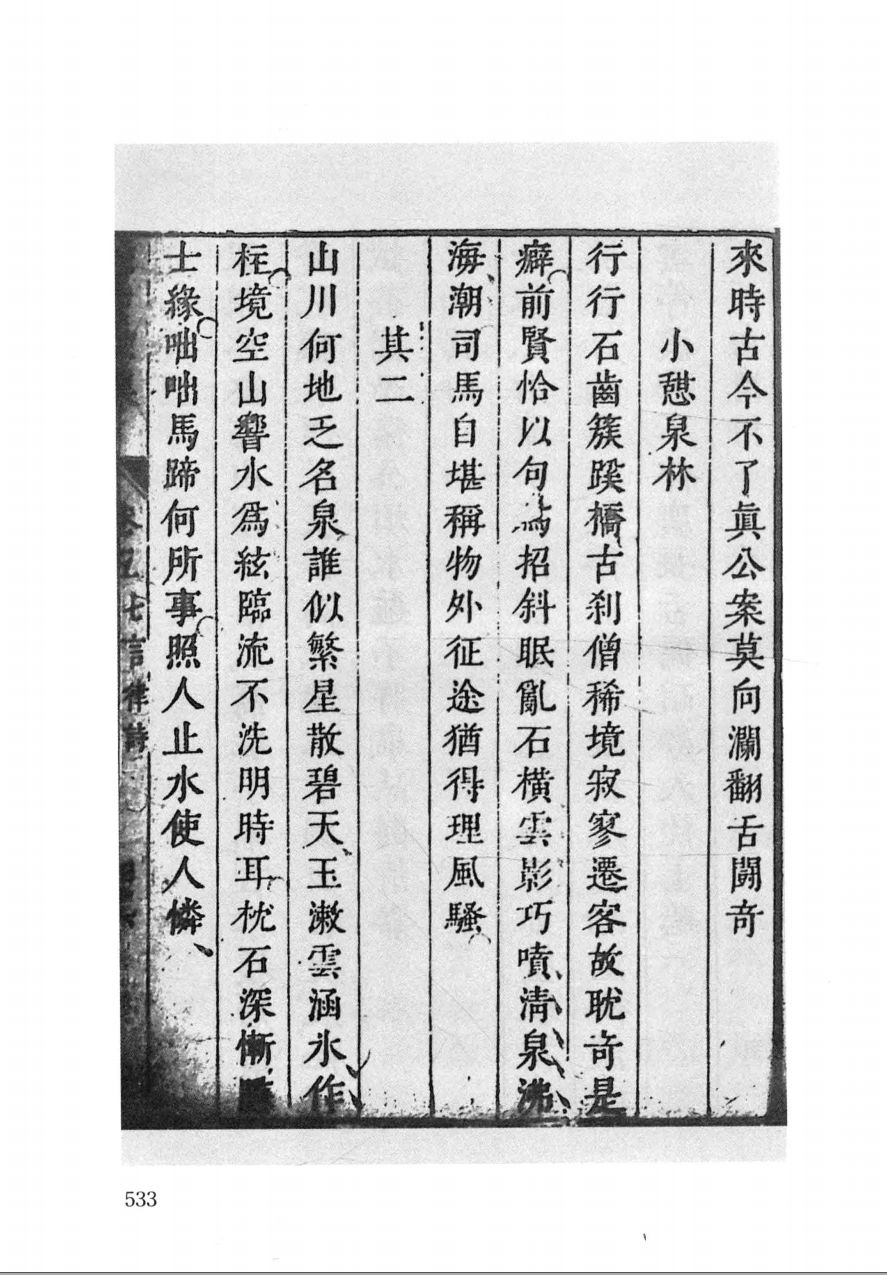 來時古今不了眞公案莫向瀾翻舌鬬奇
小憇泉林
行行石齒簇蹊橋古刹僧稀境寂寥遷客故耽奇是
癖前賢恰以句爲招斜眠亂石橫雲影巧噴清泉沸
海潮司馬自堪稱物外征途猶得理風騷
其二
山川何地乏名泉誰似繁星散碧天玉漱雲涵氷作
柱境空山響水爲絃臨流不洗明時耳枕石深慚
士緣咄咄馬蹄何所事照人止水使人憐
七言律詩
533